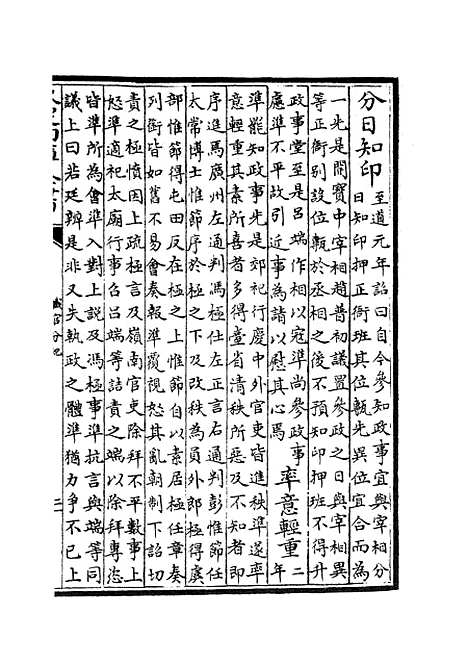 分日知印
至道元年詔自今參知政事宜與宰相分
日知印押正衙班其位甎先異位宜合而為
一先是開寶中宰相趙普初議置參政之日與宰相異
等正衙別設位甎於丞相之後不預知印押班不得升
政事堂至是呂端作相以寇準尚參政事
慮準不平故引近事為請以慰其心焉
率意輕重
二
年
準罷知政事先是郊祀行慶中外官吏皆進秩準遂率
意輕重其素所喜者多得臺省清秩所惡及不知者即
序進馬廣州左通判馮極左正言右通判彭惟節任
太常博士惟節序於極之下及改秩為員外郎極得虞
部惟節得屯田反在極之上惟節自以素居極任章奏
列銜皆如舊不易會奏報準覆視怒其亂朝制下詔切
責之極憤因上疏極言及嶺南官吏除拜不平數事上
怒準適祀太廟行事召呂端等詰責之端以除拜專恣
皆準所為會準入對上説及馮極事準抗言與端等同
議上曰若廷辨是非又失執政之體準猶力爭不已上
職官分紀
三